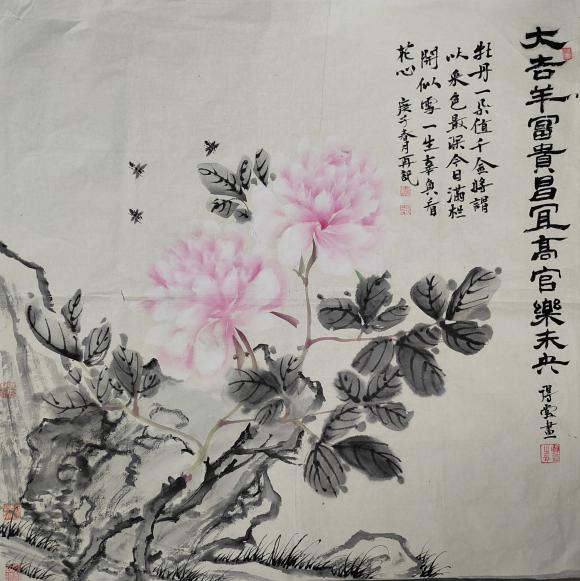 大吉羊富貴昌宜高官樂未央
得雲畫
牡丹一朵值千金將謂
从來色最深今日滿栏
開似雪一生辜負看
花心 庚子春月再記